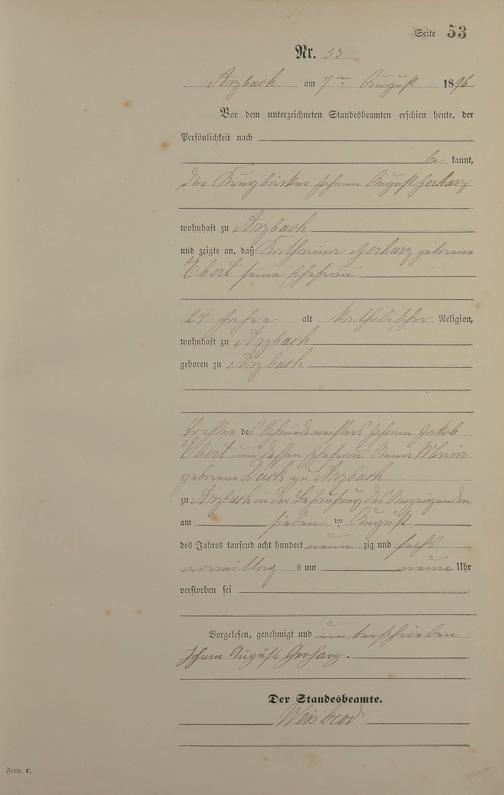 Seite 53
Nr. 53
Arzbach am 7ten August 1896
Vor dem unterzeichneten Standesbeamten erschien heute, der
Persönlichkeit nach
be kannt,
der Johann August Gerharz
wohnhaft zu Arzbach
und zeigte an, daß Katharina Gerharz geborene
Ebert seine Ehefrau
27 Jahre alt katholischer Religion,
wohnhaft zu Arzbach
geboren zu Arzbach
Tochter des Schmiedemeisters Johann Jakob
Ebert und dessen Ehefrau Anna Maria
geborene zu Arzbach
zu Arzbach in der Behausung des Anzeigenden
am sieben ten August
des Jahres tausend acht hundert neun zig und sechs
vormittag s um neun Uhr
verstorben sei
Vorgelesen, genehmigt und unterschrieben
Johann August Gerharz.
Der Standesbeamte.
Weisbrod
Form. C.